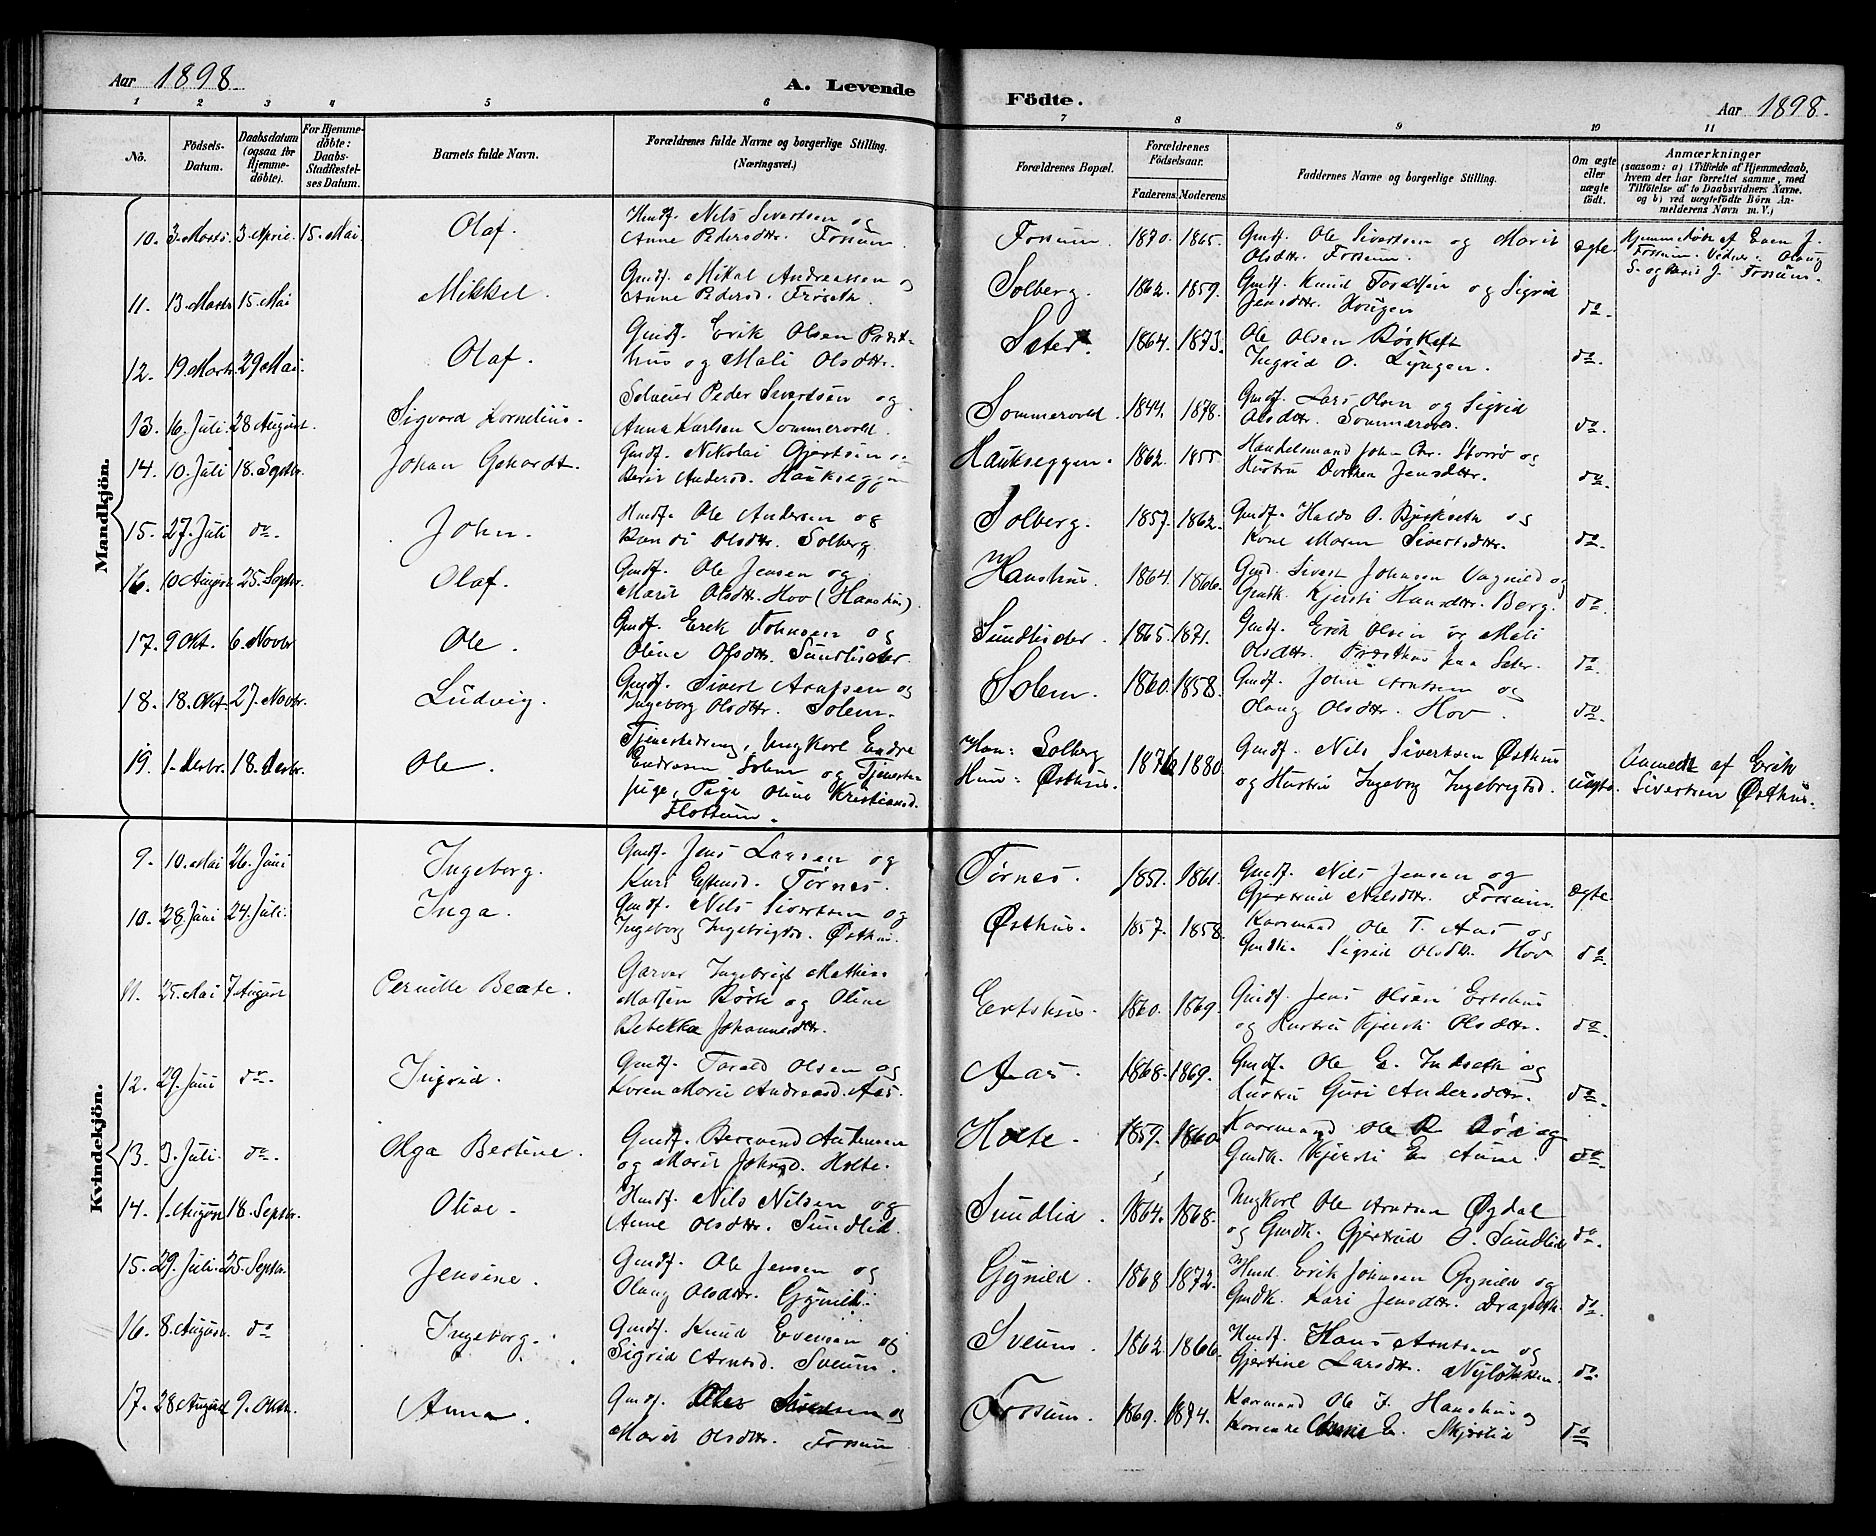 Aar 1898. A. Levende Födte. Aar 1898.
1 2 3 4 5 6 7 8 9 10 11
No. Födsels-Datum. Daabsdatum (ogsaa for Hjemme-döbte). For Hjemme-döbte: Daabs-Stadfæstel-ses Datum. Barnets fulde Navn. Forældrenes fulde Navne og borgerlige Stilling. (Næringsvei.) Forældrenes Bopæl. Forældrenes Födselsaar. Faderens. Moderens. Faddernes Navne og borgerlige Stilling. Om ægte eller uægte födt. Anmærkninger (saasom: a) i Tilfælde af Hjemmedaab, hvem der har forrettet samme, med Tilföielse af to Daabsvidners Navne. og b) ved uægtefödte Börn Anmelderens Navn m. V.)
Mandkjön.
10. 3. Marts. 3. April. 15. Mai Olaf. Husf. Nils Sivertsen og Anne Pedersdtr. Fossum. Fossum. 1870. 1865. Gmdf. Ole Sivertsen og Marit Olsdtr. Fossum. ægte. Hjemmedøbt af Even J. Fossum. Vidner: Olaug S. og J. Fossum.
11. 13. Marts 15. Mai Mikkel. Gmdf. Mikal Andreassen og Anne Pedersd. Frøseth. Solberg. 1862. 1859. Gmdf. Knud og Sigrid Jensdtr. Haugen do.
12. 19. Marts 29 Mai. Olaf. Gmdf. Erik Olsen Præsthus og Mali Olsdtr. Sæter. 1864. 1873. Ole Olsen Ingrid O. Lyngen. do.
13. 16. Juli. 28 August. Sigvard Kornelius. Peder Sivertsen og Anna Karlsen Sommervold. Sommervold. 1844. 1878. Gmdf. Lars Olsen og Sigrid Olsdtr. Sommervold. do.
14. 10. Juli 18. Septbr. Johan Gehardt. Gmdf. Nikolai Gjertsen og Berit Andersd. Haukseggen Haukseggen. 1862. 1855. Handelsmand John Chr. Storrø og Hustru Dorthea Jensdtr. do.
15. 27. Juli do. John. Husf. Ole Andersen og Randi Olsdtr. Solberg. Solberg. 1857. 1862. Gmdf. Haldo O. og Kone Maren Sivertsdtr. do.
16. 10 August 25. Septbr. Olaf. Gmdf. Ole Jensen og Marit Olsdtr. Hov (Hanshus). Hanshus. 1864. 1866. Gmd. Sivert Johnsen Vagnild og Gmdk. Kjersti Hansdtr. Berg. do.
17. 9 Okt. 6. Novbr Ole. Gmdf. Erik Johnsen og Oline Olsdtr. Sundliseter. Sundliseter. 1865. 1871. Gmdf. Erik Olsen og Mali Olsdtr. Præsthus paa Sæter. do
18. 18. Okt. 27. Novbr. Ludvig. Gmdf. Sivert Arntsen og Ingeborg Olsdtr. Solem. Solem. 1860. 1858. Gmdf. John Arntsen og Olaug Olsdtr. Hov. do.
19. 1. Decbr. 18. Decbr. Ole. Tjenestedreng, Ungkarl Endre Endresen Solem og Tjenestepige, Pige Oline Kristiansd. Flottum. Han: Solberg Hun: Østhus. 1876 1880. Gmdf. Nils Sivertsen Østhus og Hustru Ingeborg Ingebrigtsd. uægte. Anmeldt af Erik Sivertsen Østhus.
Kvindekjön.
9. 10. Mai 26. Juni Ingeborg. Gmdf. Jens Larsen og Kari Estensd. Tørnes. Tørnes. 1857. 1861. Gmdf. Nils Jensen og Gjertrud Nilsdtr. Fossum. ægte
10. 28. Juni 24. Juli. Inga. Gmdf. Nils Sivertsen og Ingeborg Ingebrigtsd. Østhus. Østhus. 1857. 1858. Kaarmand Ole T. Aas og Gmdk. Sigrid Olsdtr. Hov do.
11. 25. Mai 7 August Pernille Beate. Garver Ingebrigt Mathias Madsen og Oline Rebekka Johannesdtr. Ertshus. 1860. 1869. Gmdf. Jens Olsen Ertshus og Hustru Kjersti Olsdtr. do.
12. 29. Juni do. Ingrid. Gmdf. Torald Olsen og Karen Marie Andreasd. Aas. Aas. 1868. 1869. Gmdf. Ole E. Indseth og Hustru Guri Andersdtr. do.
13. 3. Juli. do. Olga Bertine. Gmdf. Andersen og Marit Johnsd. Holte. Holte. 1859. 1860. Kaarmand Ole og Gmdk. Kjersti E. Aune. do.
14. 1. August 18. Septbr. Olise. Husf. Nils Nilsen og Anne Olsdtr. Sundlid. Sundlid. 1864. 1868. Ungkarl Ole Arntsen Øydal og Gmdk. Gjertrud O. Sundlid do.
15. 29. Juli. 25. Septbr. Jensine. Gmdf. Ole Jensen og Olaug Olsdtr. Gynild. Gynild. 1868 1872. Husmd. Erik Johnsen Gynild og Gmdk. Kari Jensdtr. do.
16. 8. August. do Ingeborg. Gmdf. Knud Evensen og Sigrid Arntsd. Sveum. Sveum. 1862. 1866. Husf. Hans Arntsen og Gjertine Larsdtr. Nyløkken. do.
17. 28 August 9. Oktbr. Anna. Gmdf. og Marit Olsdtr. Fossum Fossum. 1869. 1874. Kaarmand Ole J. Hanshus og Kaarenke E. Skjerlid do